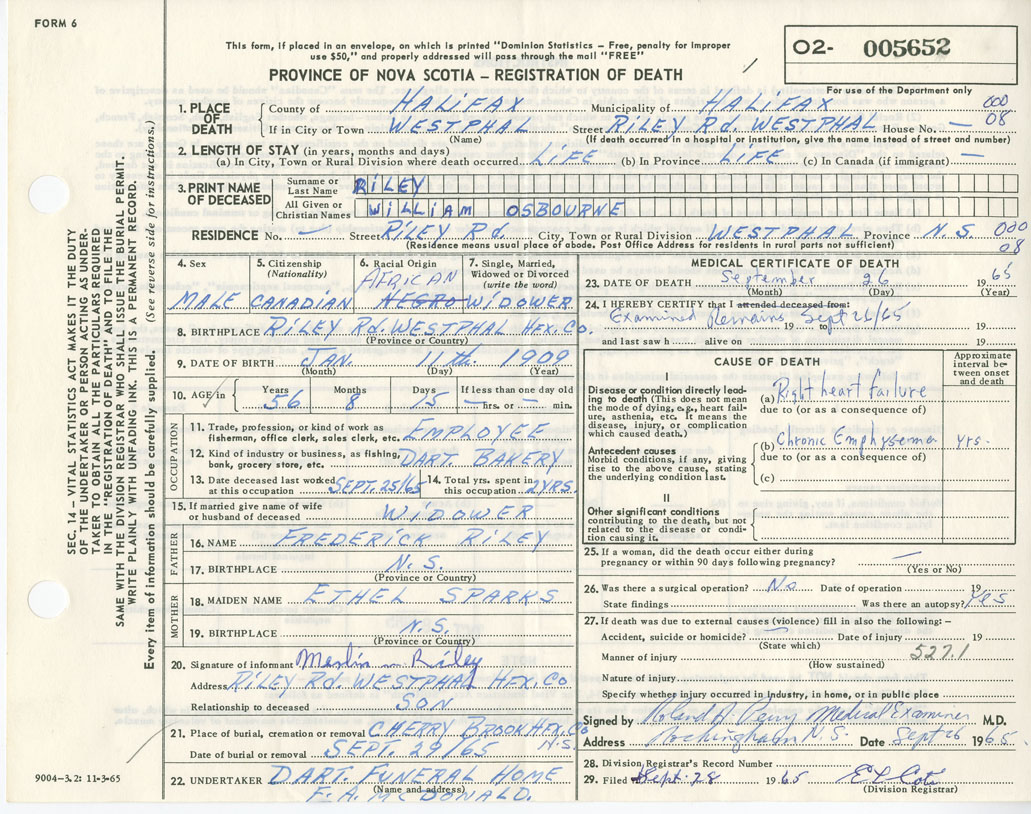 FORM 6
This form, if placed in an envelope, on which is printed "Dominion Statistics – Free, penalty for improper
use $50," and properly addressed will pass through the mail "FREE"
O2- 005652
PROVINCE OF NOVA SCOTIA – REGISTRATION OF DEATH
For use of the Department only
000
08
1. PLACE OF DEATH
County of HALIFAX Municipality of HALIFAX
If in City or Town WESTPHAL Street RILEY Rd. WESTPHAL House No. —
(Name) (If death occurred in a hospital or institution, give the name instead of street and number)
2. LENGTH OF STAY (in years, months and days)
(a) In City, Town or Rural Division where death occurred LIFE (b) In Province LIFE (c) In Canada (if immigrant) —
3. PRINT NAME OF DECEASED
Surname or Last Name RILEY
All Given or Christian Names WILLIAM OSBOURNE
RESIDENCE No. — Street RILEY Rd. City, Town or Rural Division WESTPHAL Province N.S. 000
(Residence means usual place of abode. Post Office Address for residents in rural parts not sufficient) 08
4. Sex
MALE
5. Citizenship
(Nationality)
CANADIAN
6. Racial Origin
AFRICAN
NEGRO
7. Single, Married,
Widowed or Divorced
(write the word)
WIDOWER
8. BIRTHPLACE RILEY Rd. WESTPHAL HFX. CO.
(Province or Country)
9. DATE OF BIRTH JAN. 11th. 1909
(Month) (Day) (Year)
10. AGE in Years Months Days If less than one day old
56 8 15 — hrs. or — min.
OCCUPATION
11. Trade, profession, or kind of work as
fisherman, office clerk, sales clerk, etc. EMPLOYEE
12. Kind of industry or business, as fishing,
bank, grocery store, etc. DART. BAKERY
13. Date deceased last worked
at this occupation SEPT. 25/65
14. Total yrs. spent in
this occupation 2 YRS.
15. If married give name of wife
or husband of deceased WIDOWER
FATHER
16. NAME FREDERICK RILEY
17. BIRTHPLACE N.S.
(Province or Country)
MOTHER
18. MAIDEN NAME ETHEL SPARKS
19. BIRTHPLACE N.S.
(Province or Country)
20. Signature of informant Riley
Address RILEY Rd. WESTPHAL HFX. CO
Relationship to deceased SON
21. Place of burial, cremation or removal CHERRY BROOK HFX. CO
N.S.
Date of burial or removal SEPT. 29/65
22. UNDERTAKER DART. FUNERAL HOME
(Name and address)
F. A. MCDONALD.
MEDICAL CERTIFICATE OF DEATH
23. DATE OF DEATH September 26 65
(Month) (Day) (Year)
24. I HEREBY CERTIFY that I attended deceased from:
Examined Remains 19 to Sept 26/65 19
and last saw h alive on 19
CAUSE OF DEATH
Approximate
interval be-
tween onset
and death
I
Disease or condition directly lead-
ing to death (This does not mean
the mode of dying, e.g., heart fail-
ure, asthenia, etc. It means the
disease, injury, or complication
which caused death.)
(a) Right heart failure
due to (or as a consequence of)
Antecedent causes
Morbid conditions, if any, giving
rise to the above cause, stating
the underlying condition last.
(b) Chronic Emphysema yrs.
due to (or as a consequence of)
(c)
II
Other significant conditions
contributing to the death, but not
related to the disease or condi-
tion causing it.
25. If a woman, did the death occur either during
pregnancy or within 90 days following pregnancy? —
(Yes or No)
26. Was there a surgical operation? No Date of operation 19
State findings Was there an autopsy? Yes
27. If death was due to external causes (violence) fill in also the following: –
Accident, suicide or homicide? — Date of injury 19
(State which)
Manner of injury 527.1
(How sustained)
Nature of injury
Specify whether injury occurred in industry, in home, or in public place
Signed by Roland A Perry Medical Examiner M.D.
Address Rockingham N.S. Date Sept 26 1965.
28. Division Registrar's Record Number
29. Filed Sept. 28 1965
(Division Registrar)
SEC. 14 – VITAL STATISTICS ACT MAKES IT THE DUTY
OF THE UNDERTAKER OR PERSON ACTING AS UNDER-
TAKER TO OBTAIN ALL THE PARTICULARS REQUIRED
IN THE "REGISTRATION OF DEATH" AND TO FILE THE
SAME WITH THE DIVISION REGISTRAR WHO SHALL ISSUE THE BURIAL PERMIT.
WRITE PLAINLY WITH UNFADING INK. THIS IS A PERMANENT RECORD.
Every item of information should be carefully supplied. (See reverse side for instructions.)
9004-3.2: 11-3-65